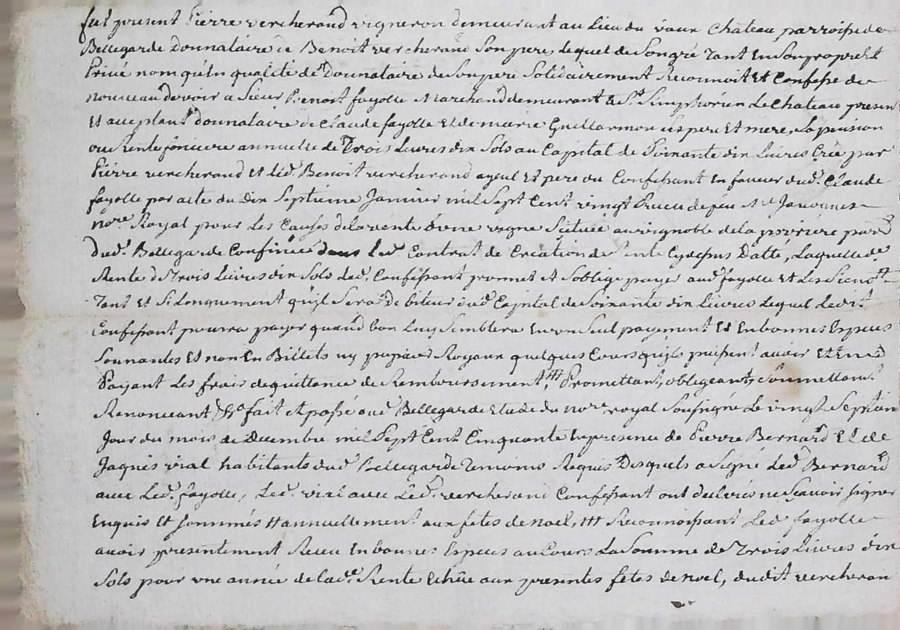 fut present Pierre vercherand vigneron demeurant au Lieu du vieux Chateau parroisse de
Bellegarde Donnataire de Benoit vercherand Son pere, Lequel de Son gré Tant En Son propre et
Privé nom qu'En qualité de Donnataire de Sonpere Solidairement Reconnoit Et Confesse de
nouveau devoir a Sieur Benoit fayolle Marchand demeurant a St. Simphorien Le Chateau present
Et acceptant donnataire de Claude fayolle Et de marie Guillarmon Ses pere Et mere, La pension
ou Rente fonciere annuelle de Trois Livres dix Sols au Capital de Soixante dix Livres Crée par
Pierre vercherand et led. Benoit vercherand ayeul Et pere du Confessant En faveur dud. Claude
fayolle par acte du dix Septieme Janvier mil Sept Cent vingt Receu de feu Me
nore Royal pour Les Causes de la vente d'une vigne Scituée au vignoble de la par
dud. Bellegarde Confinée dans Led. Contrat de Creation de rente Cy dessus Datte, Laquelle de
Rente de Trois Livres dix Sols led. Confessant promet et S'oblige payer aud. fayolle Et Les Siens
Tant et Si Longuement qu'il Sera Debiteur dud. Capital de Soixante dix Livres Lequel Ledit
Confessant pourra payer quand bon Luy Semblera En un Seul payement Et En bonnes Especes
Sonnantes Et non En Billets ny papiers Royaux quelques Cours qu'ils puissent avoir Et En
Payant Les frais de quittance de Remboursement ## Promettant, obligeant, Soumettant
Renonceant fait Et passé aud. Bellegarde Etude du nore. royal Soussigné Le vingt Sept
Jour du mois de Decembre mil Sept Cent Cinquante En presence de Pierre Bernard Et de
Jaques vial habitants dud. Bellegarde Temoins Requis Desquels a Signé Led. Bernard
avec Led. fayolle, Led. vial avec Led. vercherand Confessant ont declaré ne Scavoir Signer
Enquis Et Sommés # annuellement aux fetes de noel, ## Reconnoissant Led. fayolle
avoir presentement Receu En bonnes Especes au Cours La Somme de Trois Livres dix
Sols pour une année de lad. Rente Echüe aux presentes fetes de noel, dudit vercherand